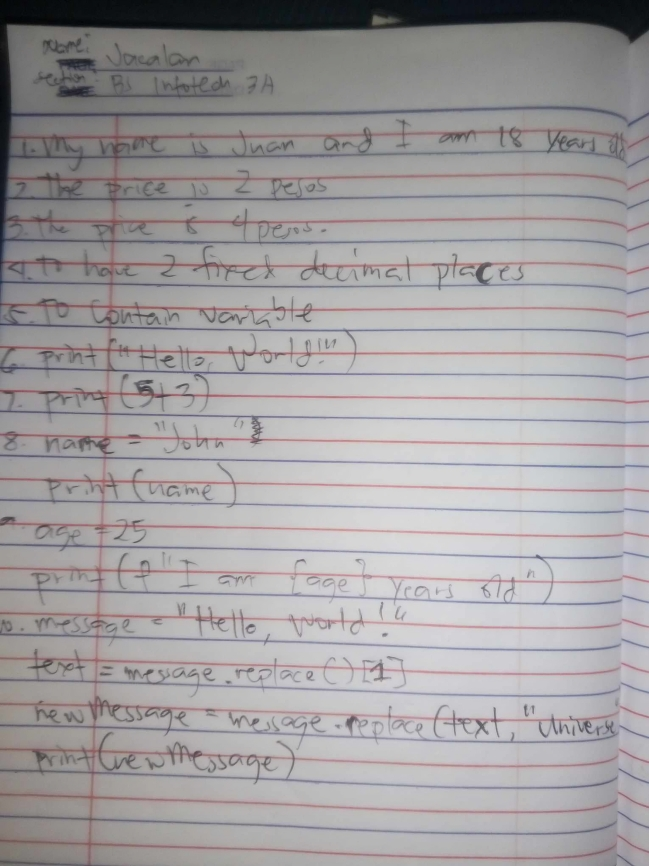 Name: Jacalan
Section: BS Infotech 3A
1. My name is Juan and I am 18 years
2. The price is 2 pesos
3. The price is 4 pesos.
4. To have 2 fixed decimal places
5. To contain variable
6. print("Hello, World!")
7. print(5+3)
8. name = "John"
print(name)
age = 25
print(f"I am {age} years old")
10. message = "Hello, World!"
text = message.replace()[1]
newMessage = message.replace(text, "Universe
print(newMessage)